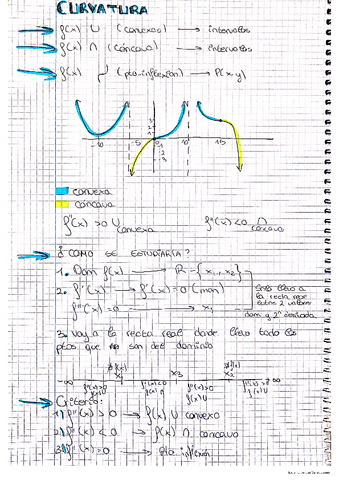 CURVATURA
f(x) ∪ (convexo) → intervalos
f(x) ∩ (cóncava) → intervalos
f(x) (pto. inflexión) → P(x,y)
-10 -5 10 15
convexa
cóncava
f''(x) > 0 ∪ convexa f''(x) < 0 ∩ cóncava
¿ COMO SE ESTUDIARÍA?
1. Dom f(x) → R - {x₁, x₂}
2. f'(x) → f'(x) = 0
Solo llevo a
la recta real
f''(x) = 0 → x₃
dom y 2ª derivada
3. Voy a la recta real donde llevo todo los
ptos que no son del dominio
-∞ x₁ x₃ x₂ ∞
Criterio:
1) f''(x) > 0 → f(x) ∪ convexo
2) f''(x) < 0 → f(x) ∩ concavo
3) f''(x) = 0 → pto. inflexión